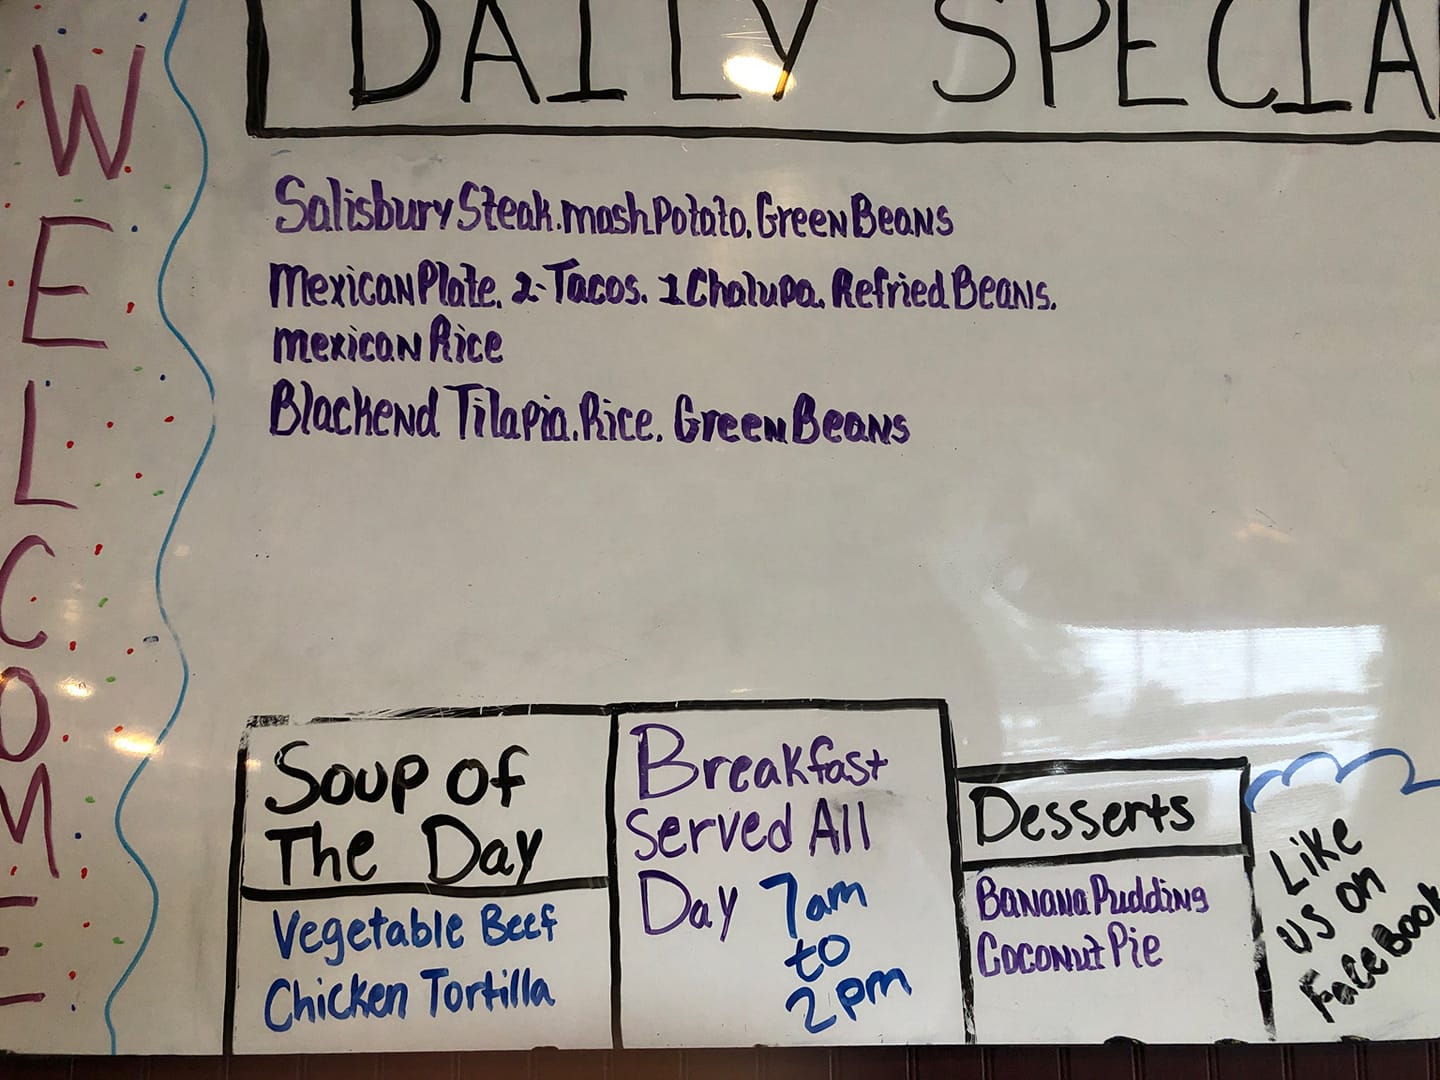 WELCOME
DAILY SPECIA
Salisbury Steak. mash Potato. Green Beans
Mexican Plate. 2-Tacos. 1 Chalupa. Refried Beans.
mexican Rice
Blackend Tilapia. Rice. Green Beans
Soup of
The Day
Vegetable Beef
Chicken Tortilla
Breakfast
Served All
Day 7am
to
2pm
Desserts
Banana Pudding
Coconut Pie
Like
us on
FaceBook